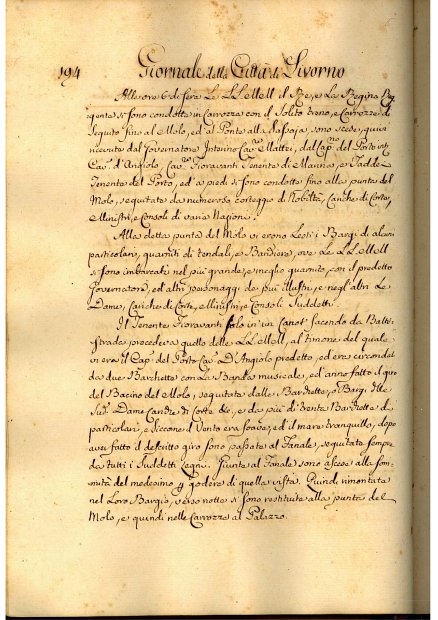 194 Giornale della Città di Livorno
Alle ore 6 di sera Le LL. MM. il Re, e La Regina Reg
gente si sono condotte in Carrozza con il Solito treno, e Carrozze di
Seguito fino al Molo, ed al Ponte alla Sassaja, sono scese, quivi
ricevute dal Governatore Interino Cav.re Mattei, dal Cap.no del Porto
Cav. d'Angiolo, Cav.re Fioravanti Tenente di Marina, e Taddei
Tenente del Porto, ed a piedi si sono condotte fino alla punta del
Molo, seguitate da numeroso corteggio di Nobiltà, Cariche di Corte,
e Ministri, e Consoli di varie Nazioni.
Alla detta punta del Molo vi erono Lesti i Bargi di alcuni
particolari, guarniti di tendali, e Bandiere, ove Le LL. MM.
si sono imbarcate nel più grande, e meglio guarnito, con il predetto
Governatore, ed altri personaggi de più illustri, e negl'altri Le
Dame, Cariche di Corte, e Ministri, e Consoli Suddetti.
Il Tenente Fioravanti solo in un Canot facendo da Batti-
strada precedeva quello delle LL. MM., al timone del quale
vi era il Cap.no del Porto Cav. D'Angiolo predetto, ed era circondato
da due Barchette con La Banda musicale, ed anno fatto il giro
del Bacino del Molo, seguitate dalle Barchette, o Bargi delle
Sud.e Dame Cariche di Corte &c, e da più di trenta Barchette di
particolari, e siccome il Vento era soave, ed il mare tranquillo, dopo
aver fatto il descritto giro sono passate al Fanale, seguitate sempre
da tutti i Suddetti Legni. Giunte al Fanale sono ascese alla som-
mità del medesimo p godere di quella vista. Quindi rimontate
nel Loro Bargio, verso notte si sono restituite alla punta del
Molo, e quindi nelle Carrozze al Palazzo.